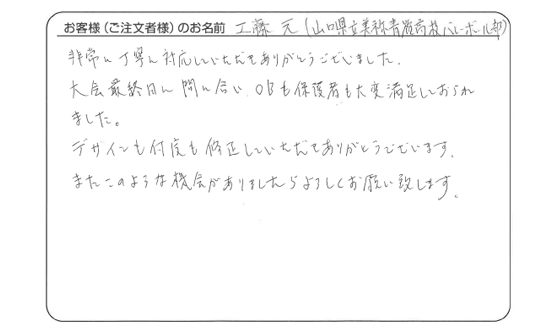 お客様(ご注文者様)のお名前 工藤 元(山口県立美祢青嶺高校バレーボール部)
非常に丁寧に対応していただきありがとうございました。
大会最終日に間に合い、OBも保護者も大変満足しておられ
ました。
デザインも何度も修正していただきありがとうございます。
またこのような機会がありましたらよろしくお願い致します。